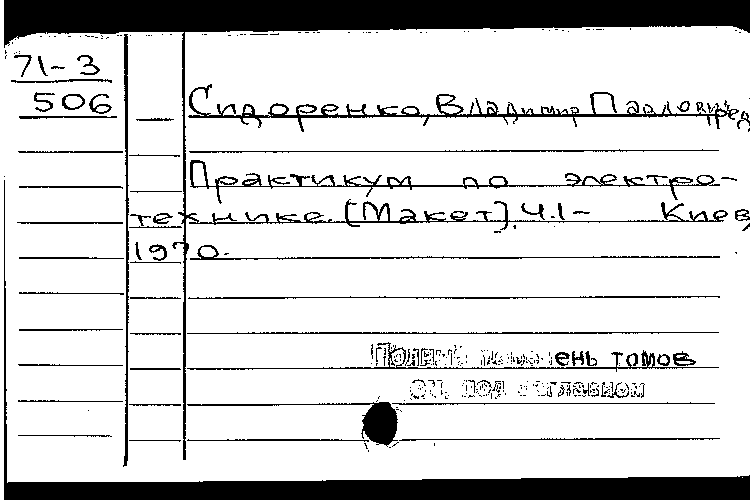 71-3
506
Сидоренко, Владимир Павлович, ред.
Практикум по электро-
технике. [Макет]. Ч.1- Киев,
1970.
Полный перечень томов
см. под заглавием